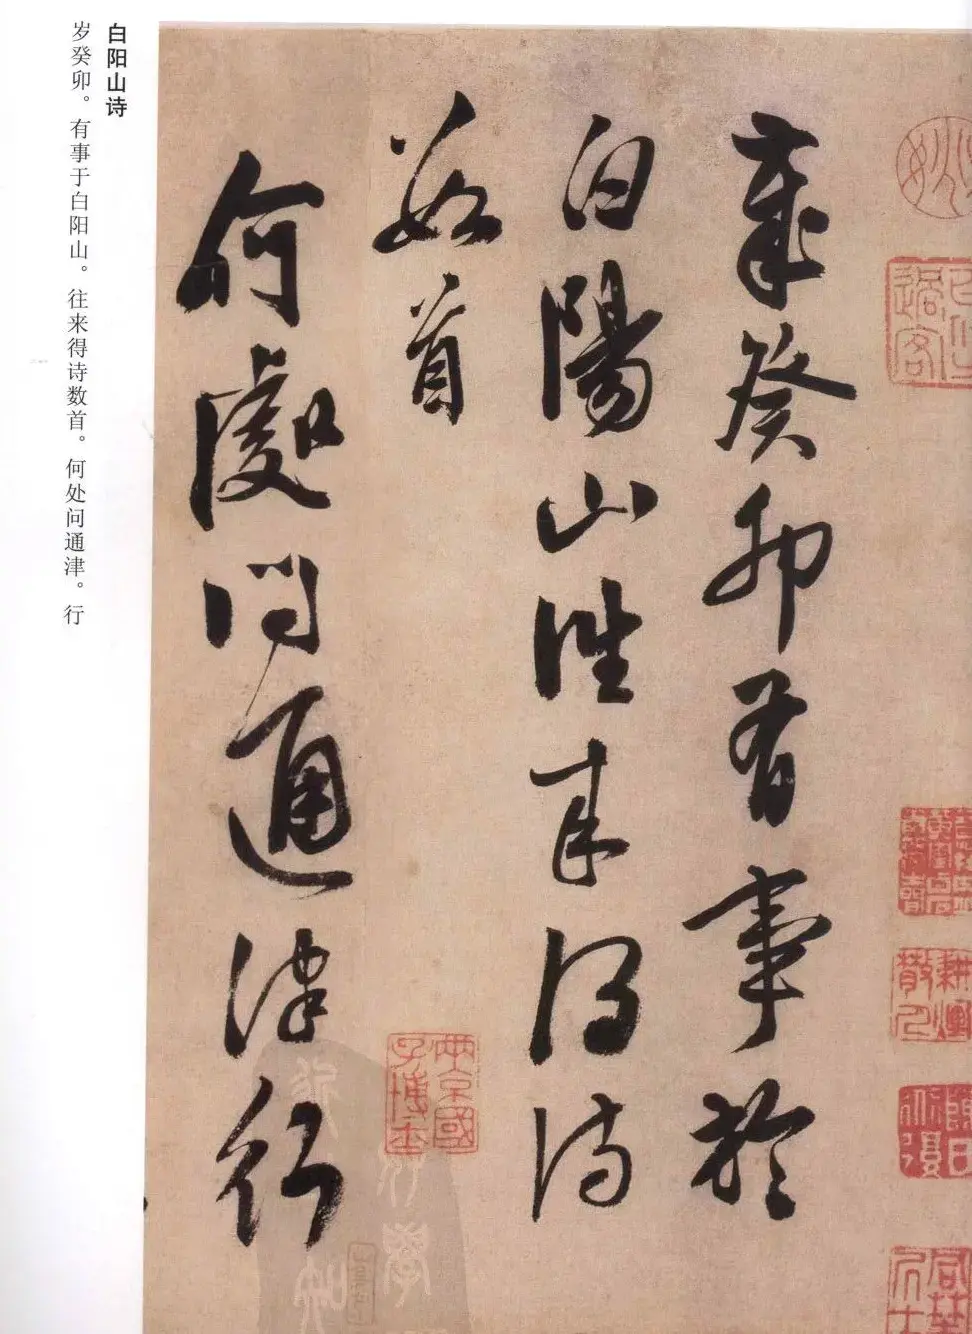 白阳山诗
岁癸卯。有事于白阳山。往来得诗数首。何处问通津。行
歲癸卯有事於
白陽山往來得詩
數首
何處問通津行
兩京國
子博士